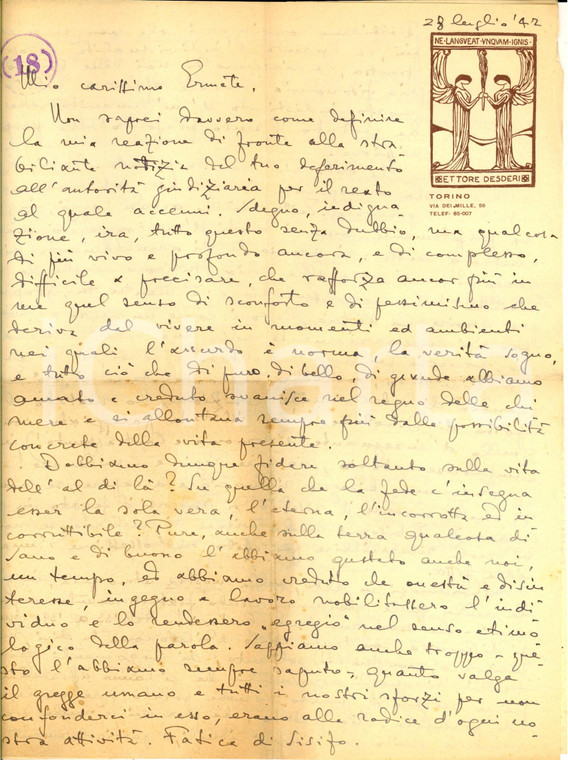 28 luglio '42
(18)
NE·LANGVEAT·VNQVAM·IGNIS·
ETTORE DESDERI
TORINO
VIA DEI MILLE, 56
TELEF: 65-007
Mio carissimo Ermete,
Non saprei davvero come definire
la mia reazione di fronte alla stra
biliante notizia del tuo deferimento
all'autorità giudiziaria per il reato
al quale accenni. Sdegno, indigna-
zione, ira, tutto questo senza dubbio, ma qualcosa
di più vivo e profondo ancora, e di complesso,
difficile a precisare, che rafforza ancor più in
me quel senso di sconforto e di pessimismo che
deriva dal vivere in momenti ed ambienti
nei quali l'assurdo è norma, la verità sogno,
e tutto ciò che di puro, di bello, di grande abbiamo
amato e creduto svanisce nel regno delle chi
mere e si allontana sempre più dalla possibilità
concreta della vita presente.
Dobbiamo dunque fidare soltanto sulla vita
dell'al di là? Su quella che la fede c'insegna
esser la sola vera, l'eterna, l'incorrotta ed in
corruttibile? Pure, anche sulla terra qualcosa di
sano e di buono l'abbiamo gustato anche noi,
un tempo, ed abbiamo creduto che onestà e disin
teresse, ingegno e lavoro nobilitassero l'indi
viduo e lo rendessero „egregio" nel senso etimo
logico della parola. Sappiamo anche troppo - que-
sto l'abbiamo sempre saputo -, quanto valga
il gregge umano e tutti i nostri sforzi per non
confonderci in esso, erano alla radice d'ogni no-
stra attività. Fatica di Sisifo.